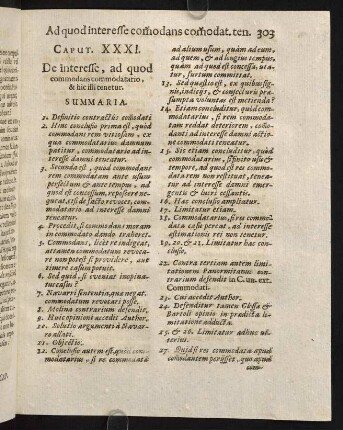 Ad quod interesse comodans comodat. ten. 303
CAPUT. XXXI.
De interesse, ad quod
commodans commodatario,
& hic illi tenetur.
SUMMARIA.
1. Definitio contractus comodati
2. Hinc conclusio prima est, quod
commodans rem vitiosam, ex
qua commodatarius damnum
patitur, commodatario ad in
teresse damni teneatur.
3. Secunda est, quod commodans
rem commodatam ante usum
perfectum & ante tempus, ad
quod est concessum, repetere ne
queat, et si de facto revocet, com
modatario ad interesse damni
teneatur.
4. Procedit, si commodans moram
in commodato dando traheret.
5. Commodans, licet re indigeat,
attamen commodatum revoca
re non potest si providere, aut
timere casum potuit.
6. Sed quid, si eveniat inopina
ture casus?
7. Navarri sententia, quae negat,
commodatum revocari posse.
8. Molina contrarium defendit.
9. Huic opinioni accedit Author.
10. Solutio argumenti à Navar
ro allati.
11. Objectio.
12. Conclusio autem est, quod com
modatarius, si re commodata
ad alium usum, quàm ad eum,
ad quem, & ad longius tempus,
quàm ad quod est concessa, uta
tur, furtum committat.
13. Sed quaestio est, ex quibus sig
nis, indicijs, & conjecturis prae
sumpta voluntas est metienda?
14. Etiam concluditur, quod com
modatarius, si rem commoda
tam reddat deteriorem, commo
danti ad interesse damni actio
ne commodati teneatur.
15. Sic etiam concluditur, quod
commodatarius, si finito usu &
tempore, ad quod est res commo
data rem non restituat, tenea
tur ad interesse damni emer
gentis & lucri cessantis.
16. Haec conclusio ampliatur.
17. Limitatur etiam.
18. Commodatarius, si res commo
data casu pereat, ad interesse
aestimationis rei non tenetur.
19. 20. & 21. Limitatur haec con
clusio.
22. Contra tertiam autem limi
tationem Panormitanus con
trarium defendit in Cum. ext.
Commodati.
23. Cui accedit Author.
24. Defenditur tamen Glossa &
Bartoli opinio in praedicta li
mitatione adducta.
25. & 26. Limitatur adhuc ube
rius.
27. Quid si res commodata apud
commodantem perijsset, quo apud
com-